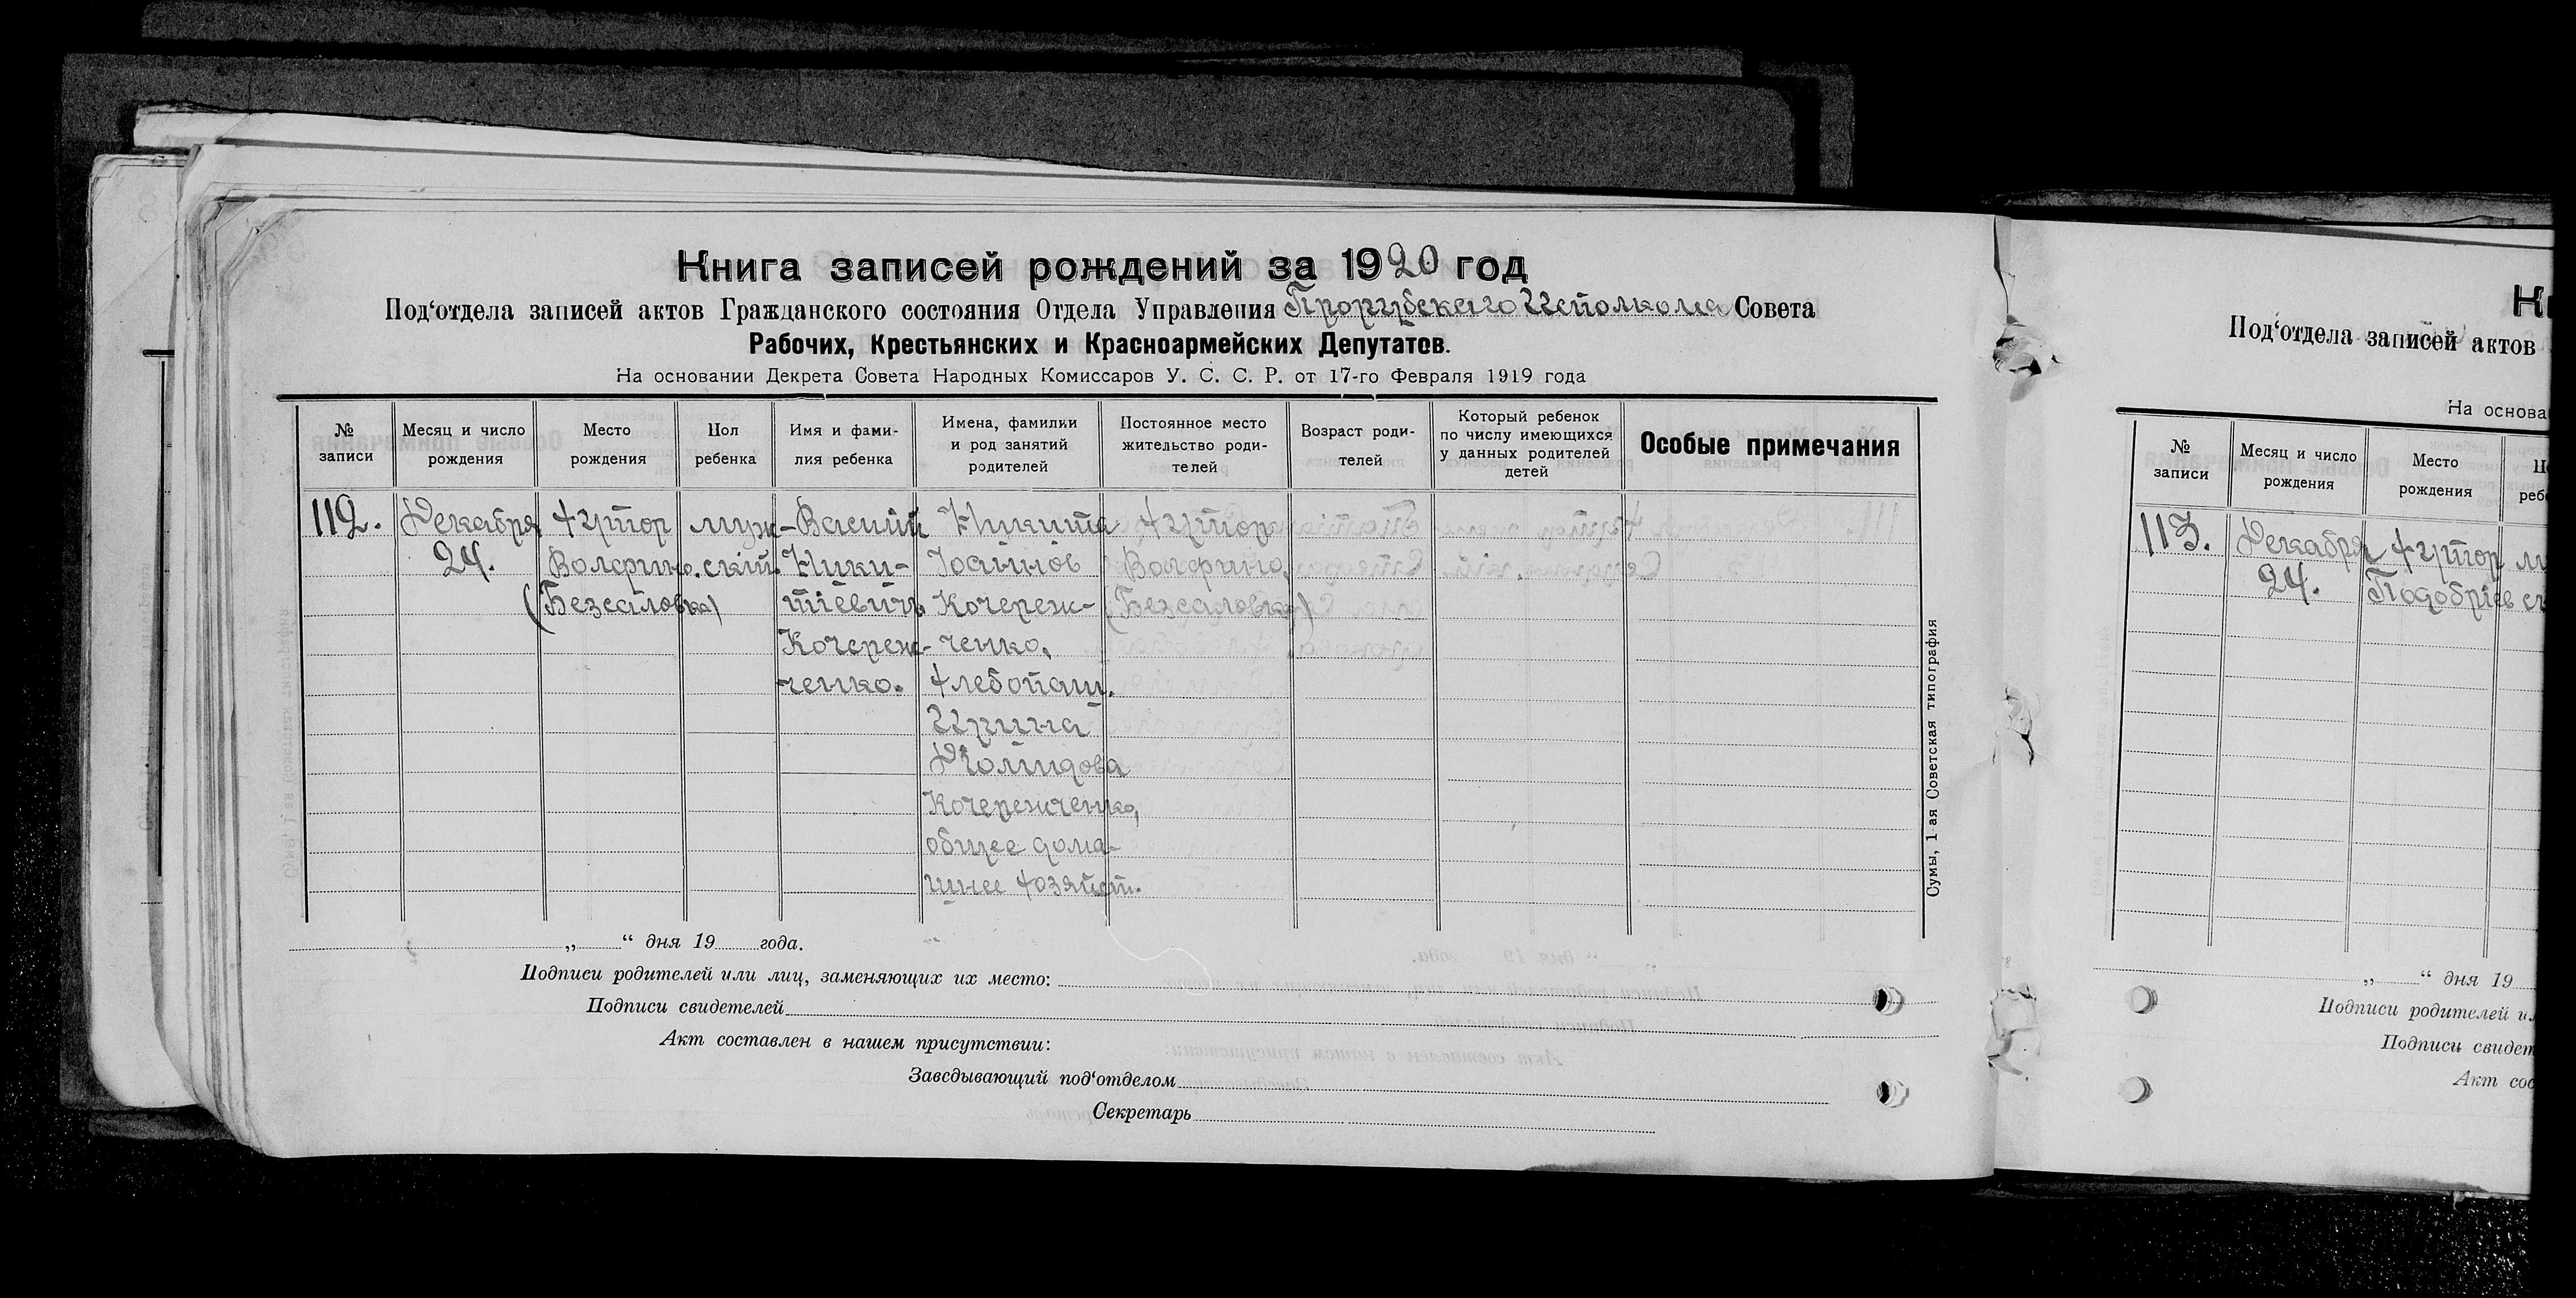 Книга записей рождений за 1920 год
Под‘отдела записей актов Гражданского состояния Отдела Управления Исполкома Совета
Рабочих, Крестьянских и Красноармейских Депутатов.
На основании Декрета Совета Народных Комиссаров У. С. С. Р. от 17-го Февраля 1919 года
№ записи
Месяц и число рождения
Место рождения
Пол ребенка
Имя и фами-
лия ребенка
Имена, фамилии
и род занятий
родителей
Постоянное место
жительство роди-
телей
Возраст роди-
телей
Который ребенок
по числу имеющихся
у данных родителей
детей
Особые примечания
112.
Декабря
24.
Хутор
Волфино.
(Безсаловка)
муж-
ский.
Василий
Ники-
тіевичъ
Кочереж-
ченко.
Никита
Іоаннов
Кочереж-
ченко,
хлебопаш.
Ирина
Кочережченко,
общее дома-
шнее хозяйст.
Хутор
Волфино.
(Безсаловка)
Сумы, 1-ая Советская типография
„ “ дня 19 года.
Подписи родителей или лиц, заменяющих их место:
Подписи свидетелей
Акт составлен в нашем присутствии:
Заведывающий под‘отделом
Секретарь
Кн
Под‘отдела записей актов
На основа
№ записи
Месяц и число
рождения
Место
рождения
113.
Декабря
24.
Хутор
„ “ дня 19
Подписи родителей ил
Подписи свидет
Акт сос